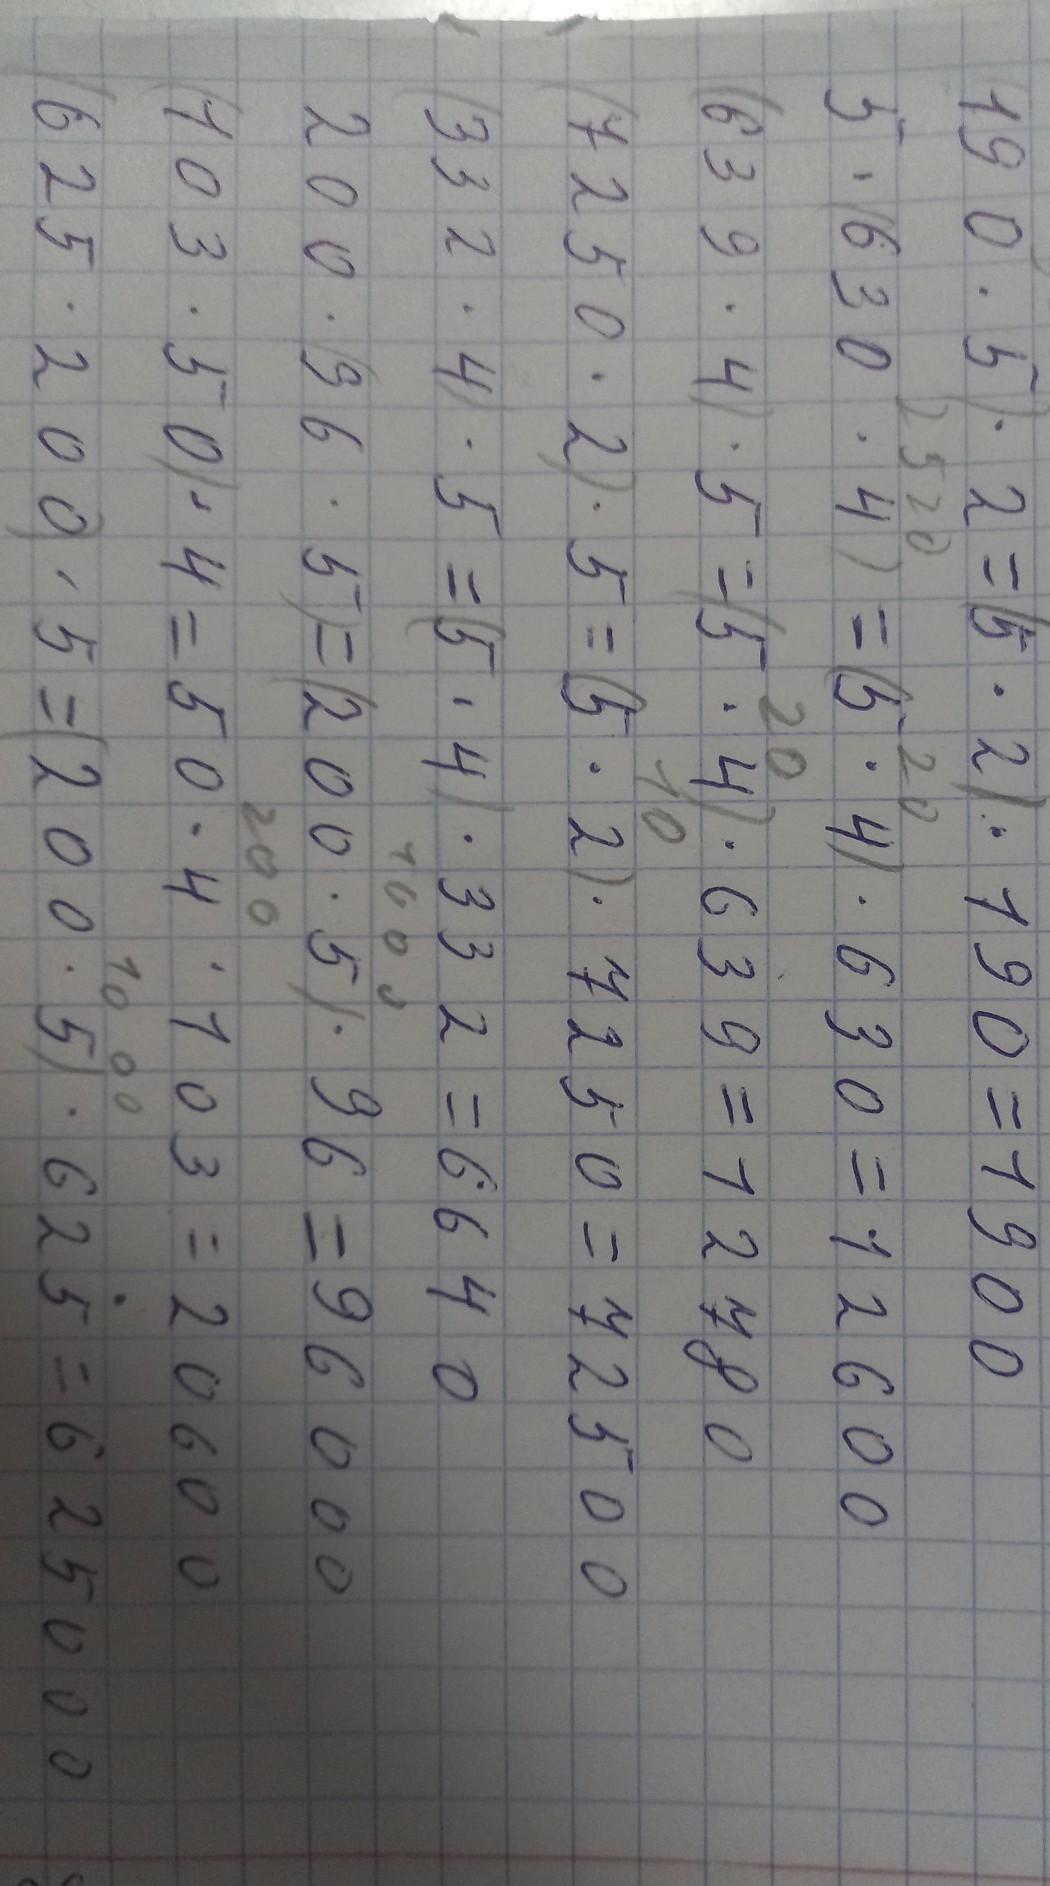 (190·5)·2=(5·2)·190=1900
2520 20
5·(630·4)=(5·4)·630=12600
20
(639·4)·5=(5·4)·639=12780
10
(7250·2)·5=(5·2)·7250=72500
(332·4)·5=(5·4)·332=6640
1000
200·(96·5)=(200·5)·96=96000
200
(103·50)·4=50·4·103=20600
1000
(625·200)·5=(200·5)·625=625000